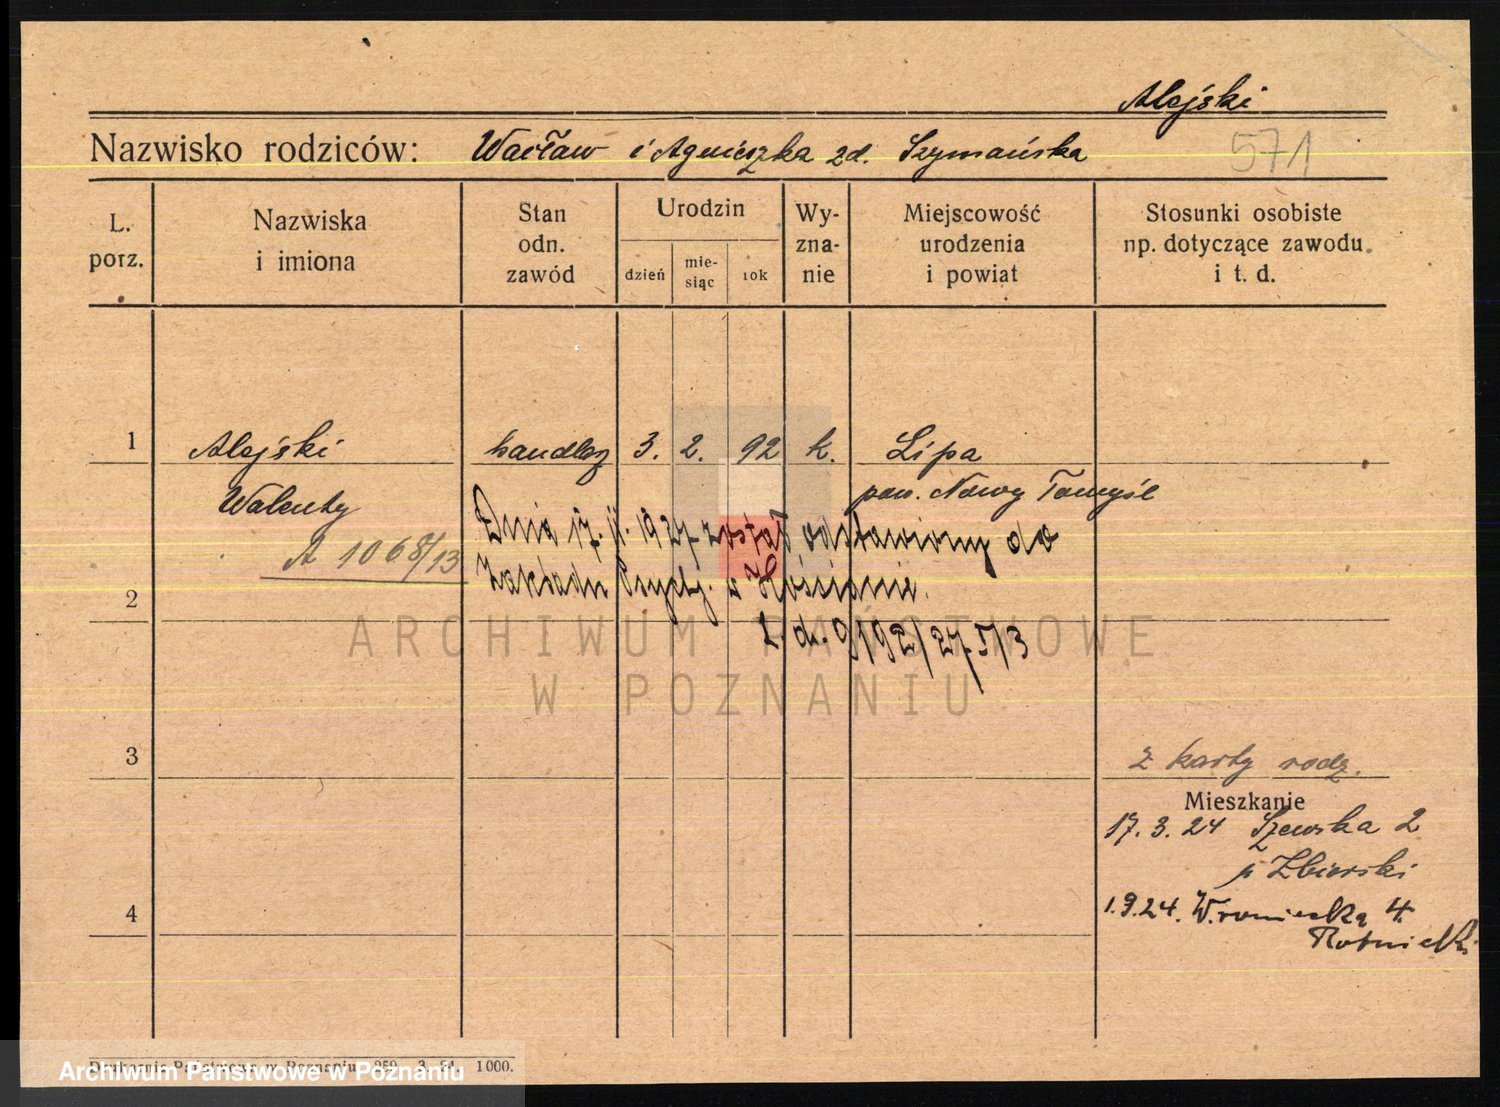 Alejski
Nazwisko rodziców: Wacław i Agnieszka zd. Szymańska 571
L. porz.
Nazwiska i imiona
Stan odn. zawód
Urodzin
dzień
mie-siąc
rok
Wy-zna-nie
Miejscowość urodzenia i powiat
Stosunki osobiste np. dotyczące zawodu i t. d.
1 Alejski handlarz 3. 2. 92 k. Lipa
Walenty pow. Nowy Tomyśl
A 1068/13
Dnia 17. II. 1927 został odstawiony do
Zakładu Psych. w Kościanie.
2
L. dz. 9192/27
ARCHIWUM PAŃSTWOWE
W POZNANIU
3 z karty rodz.
Mieszkanie
17. 3. 24 Szewska 2
p Zbierski
4 1.9.24. Wroniecka 4.
Drukarnia Państwowa w Poznaniu 3. 24. 1000.
Archiwum Państwowe w Poznaniu